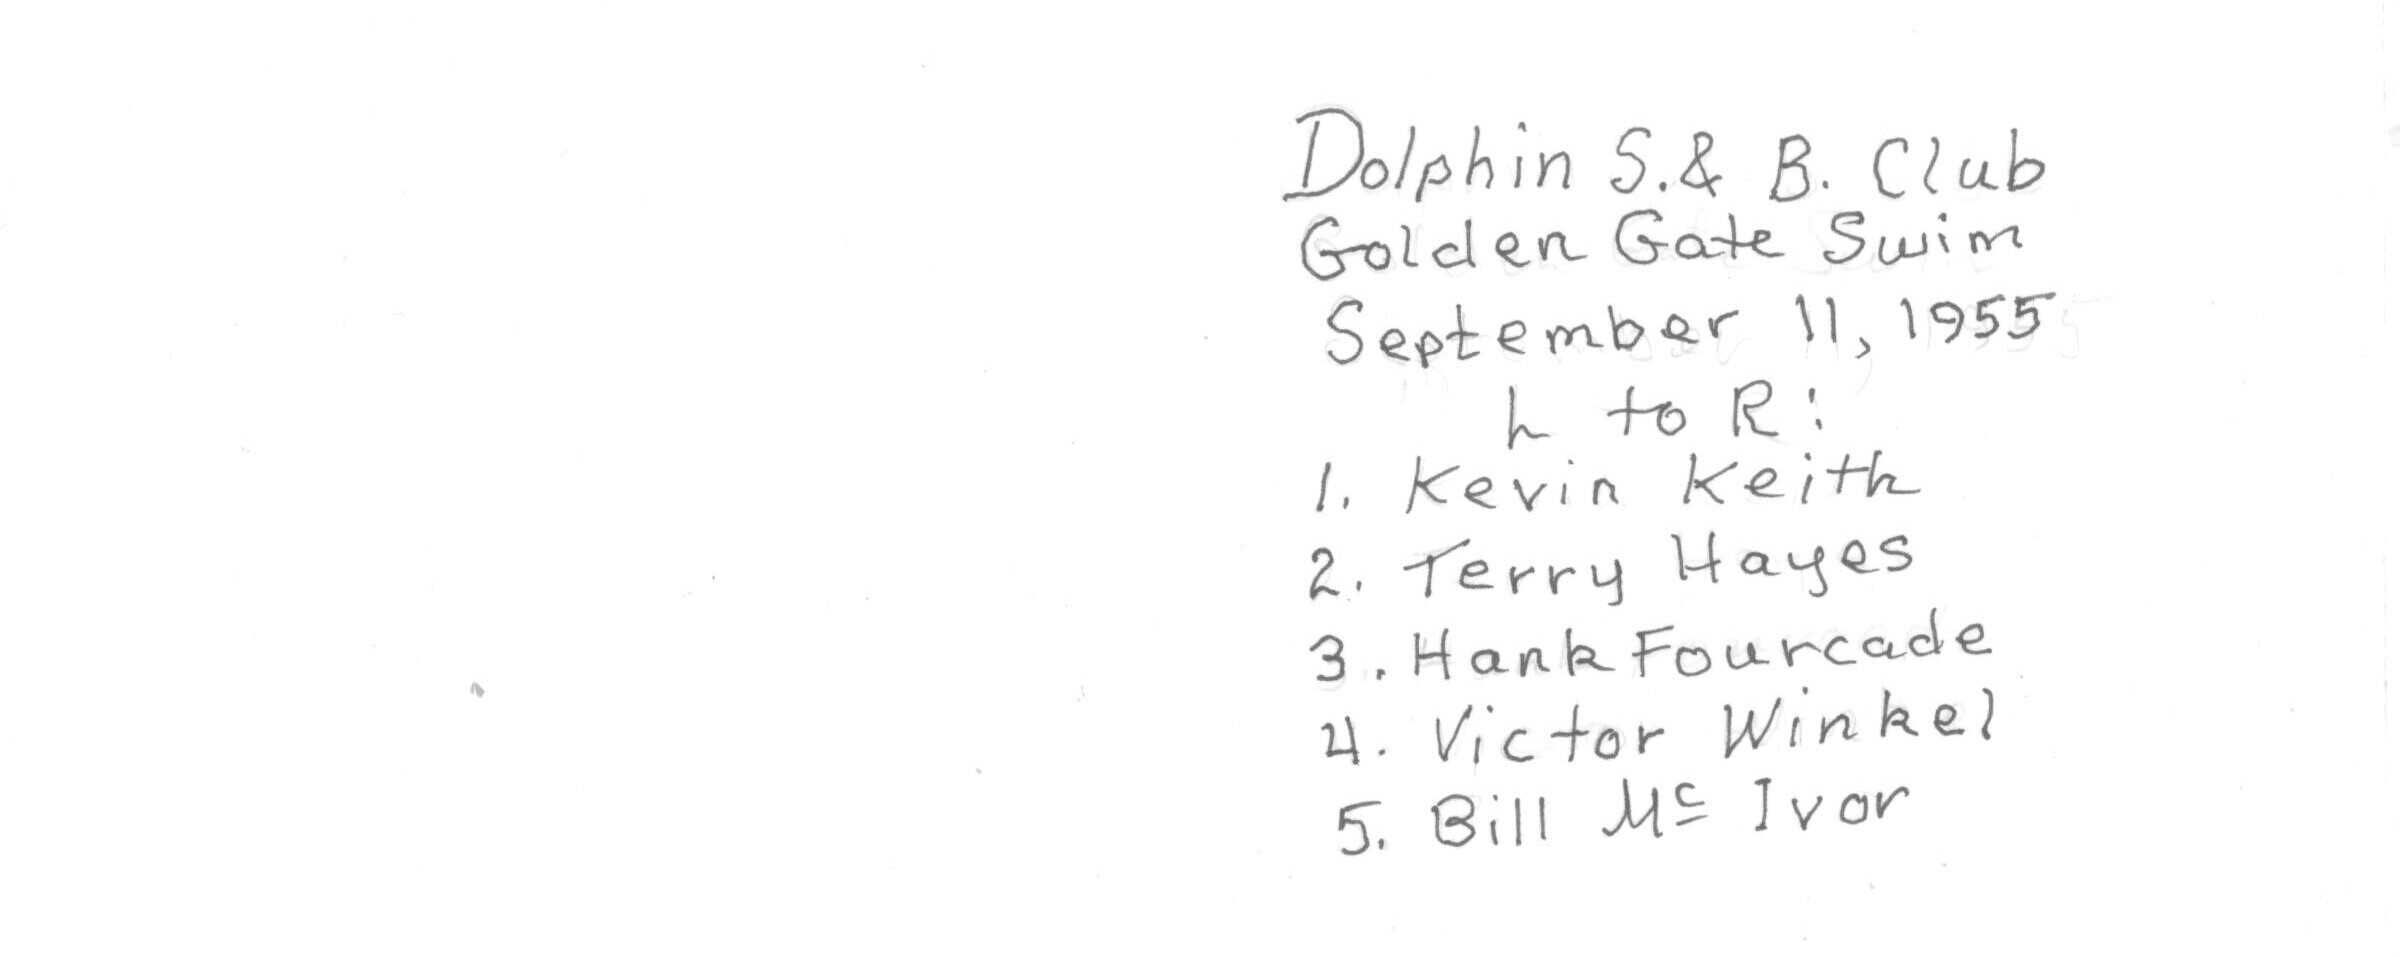 Dolphin S. & B. Club
Golden Gate Swim
September 11, 1955
L to R:
1. Kevin Keith
2. Terry Hayes
3. Hank Fourcade
4. Victor Winkel
5. Bill Mc Ivor